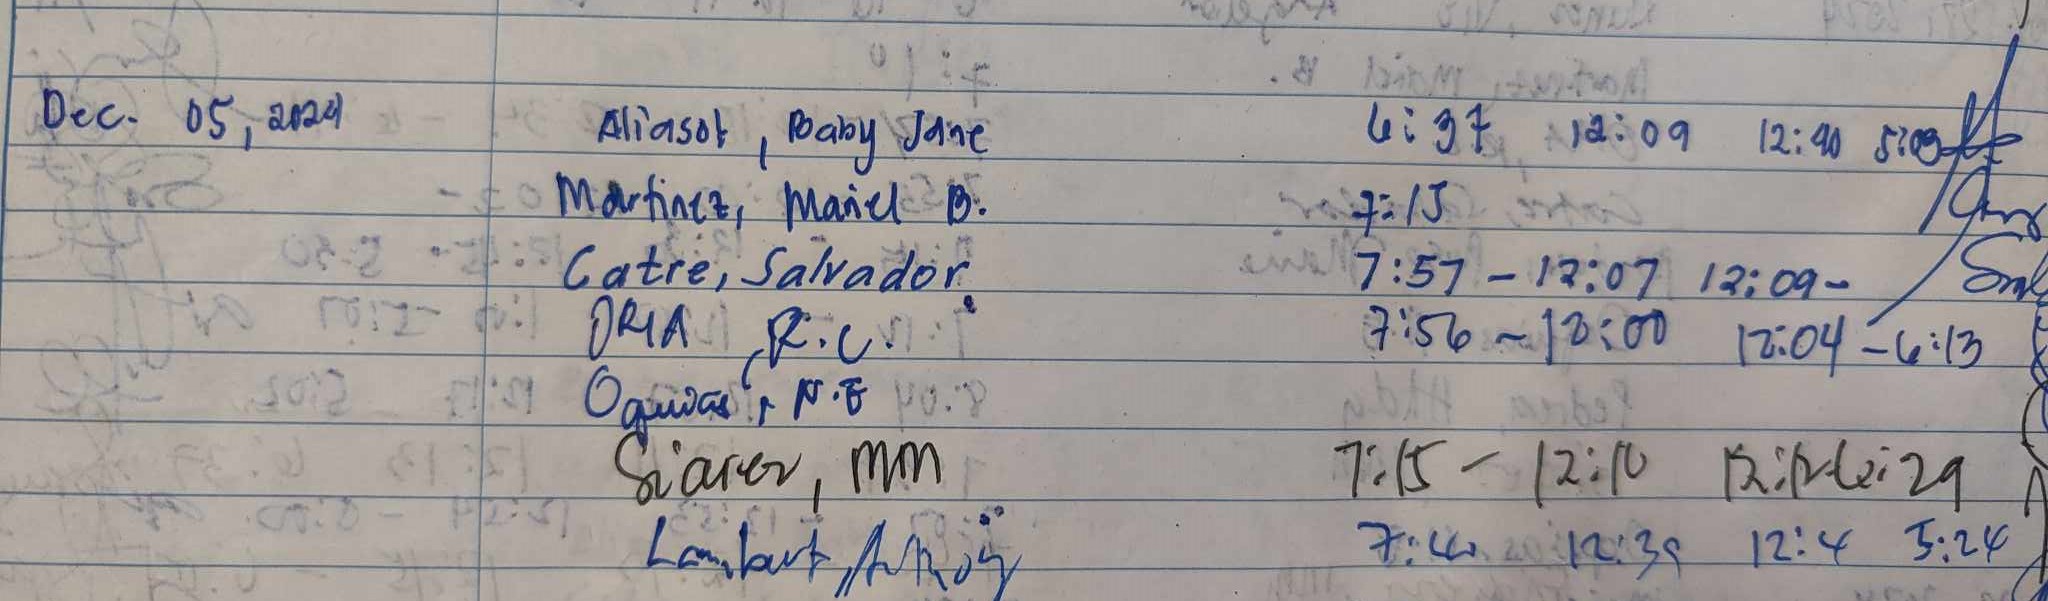 Dec. 05, 2024 Aliasot, Baby Jane 6:37 12:09 12:40 5:03
Martinez, Mariel B. 7:15
Catre, Salvador 7:57 - 12:07 12:09-
ORIA, R.C. 7:56 - 12:00 12:04 - 6:13
N.E
Siarez, MM 7:15 - 12:10 12:12-6:29
Lambart, 7:40 12:39 12:4 5:24